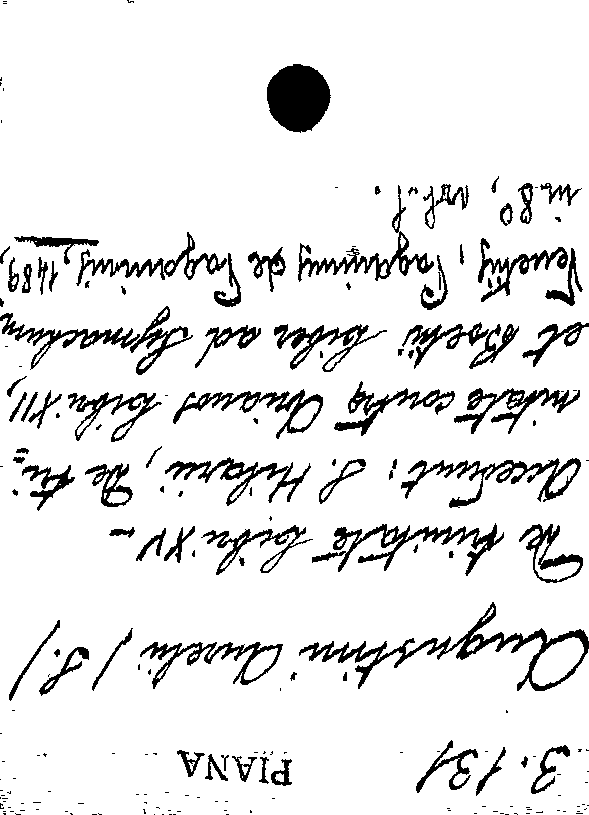 3.131 PIANA
Augustini Aurelii (S.)
De trinitate Libri XV –
Accedunt: S. Hilarii, De Tri=
nitate contra Arianos Libri XII,
et Boetii Liber ad Symachum
Venetiis, Paganinus de Paganinis, 1489,
in 8°,